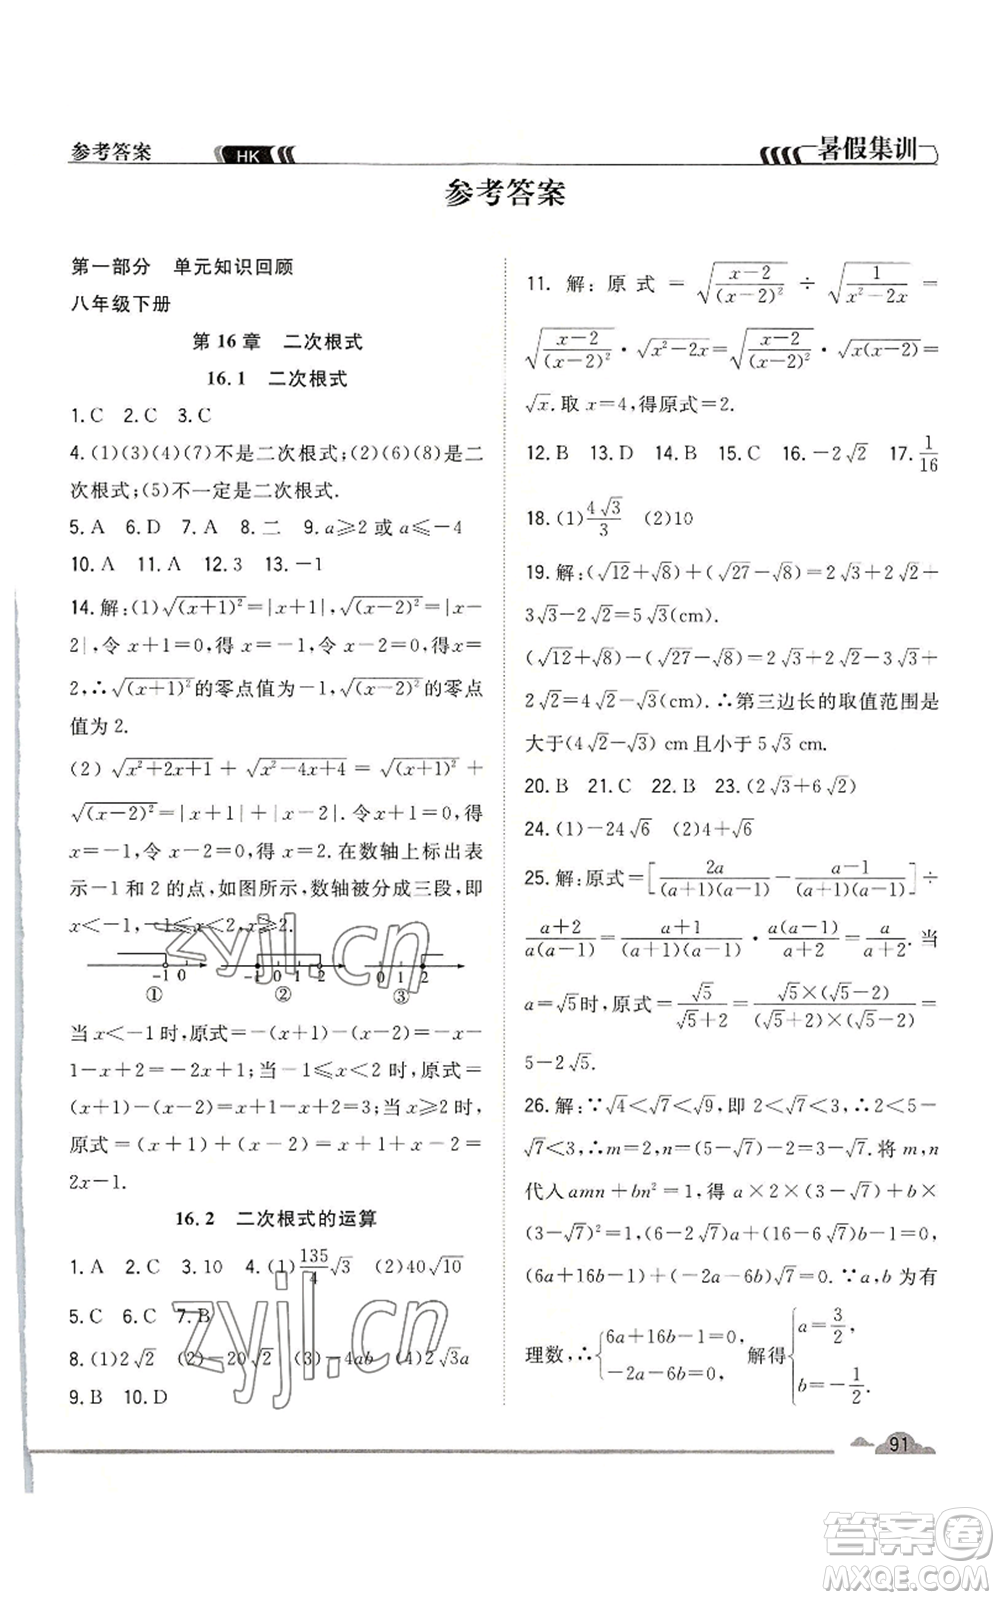 参考答案
HK
暑假集训
参考答案
第一部分 单元知识回顾
八年级下册
第 16 章 二次根式
16.1 二次根式
1. C 2. C 3. C
4. (1)(3)(4)(7)不是二次根式;(2)(6)(8)是二
次根式;(5)不一定是二次根式.
5. A 6. D 7. A 8. 二 9. a≥2 或 a≤-4
10. A 11. A 12. 3 13. -1
14. 解:(1)√(x+1)²=|x+1|,√(x-2)²=|x-
2|,令 x+1=0,得 x=-1,令 x-2=0,得 x=
2,∴√(x+1)²的零点值为-1,√(x-2)²的零点
值为 2.
(2) √x²+2x+1 + √x²-4x+4 = √(x+1)² +
√(x-2)²=|x+1|+|x-2|. 令 x+1=0,得
x=-1,令 x-2=0,得 x=2. 在数轴上标出表
示-1 和 2 的点,如图所示,数轴被分成三段,即
x<-1,-1≤x<2,x≥2.
-1 0
-1 0 1 2
0 1 2
① ② ③
当 x<-1 时,原式=-(x+1)-(x-2)=-x-
1-x+2=-2x+1;当-1≤x<2 时,原式=
(x+1)-(x-2)=x+1-x+2=3;当 x≥2 时,
原式=(x+1)+(x-2)=x+1+x-2=
2x-1.
16.2 二次根式的运算
1. A 2. C 3. 10 4. (1)135/4√3 (2)40√10
5. C 6. C 7. B
8. (1)2√2 (2)-20√2 (3)-4ab (4)2√3a
9. B 10. D
11. 解:原式 = √((x-2)/(x-2)²) ÷ √(1/(x²-2x)) =
√((x-2)/(x-2)²)·√(x²-2x)=√((x-2)/(x-2)²)·√(x(x-2))=
√x. 取 x=4,得原式=2.
12. B 13. D 14. B 15. C 16. -2√2 17. 1/16
18. (1)4√3/3 (2)10
19. 解:(√12+√8)+(√27-√8)=2√3+2√2+
3√3-2√2=5√3(cm).
(√12+√8)-(√27-√8)=2√3+2√2-3√3+
2√2=4√2-√3(cm). ∴第三边长的取值范围是
大于(4√2-√3) cm 且小于 5√3 cm.
20. B 21. C 22. B 23. (2√3+6√2)
24. (1)-24√6 (2)4+√6
25. 解:原式=[2a/((a+1)(a-1))-(a-1)/((a+1)(a-1))]÷
(a+2)/(a(a-1))=(a+1)/((a+1)(a-1))·a(a-1)/(a+2)=a/(a+2). 当
a=√5时,原式=√5/(√5+2)=√5×(√5-2)/((√5+2)(√5-2))=
5-2√5.
26. 解:∵√4<√7<√9,即 2<√7<3,∴2<5-
√7<3,∴m=2,n=(5-√7)-2=3-√7. 将 m,n
代入 amn+bn²=1,得 a×2×(3-√7)+b×
(3-√7)²=1,∴(6-2√7)a+(16-6√7)b-1=0,
(6a+16b-1)+(-2a-6b)√7=0. ∵a,b 为有
理数,∴{6a+16b-1=0, -2a-6b=0, 解得{a=3/2, b=-1/2.
91
zyjl.cn
zyjl.cn
答案卷
MXQE.COM